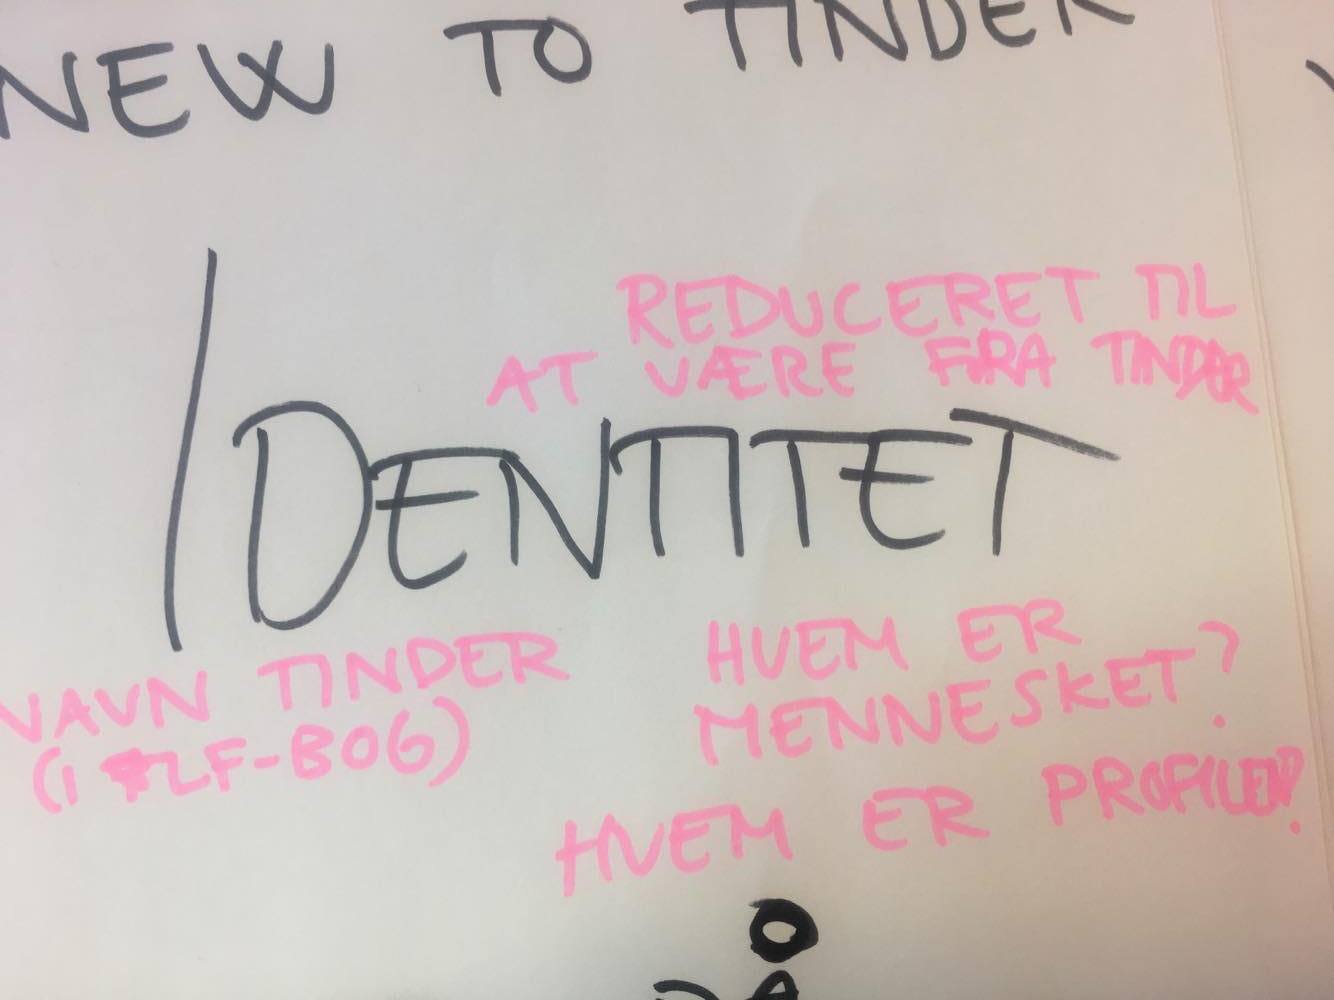 NEW TO TINDER
REDUCERET TIL
AT VÆRE FRA TINDER
IDENTITET
NAVN TINDER
(I TLF-BOG)
HVEM ER
MENNESKET?
HVEM ER PROFILEN?